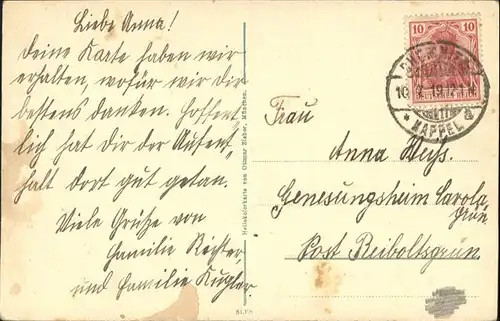 Liebe Anna!
Deine Karte haben wir
erhalten, wofür wir dir
bestens danken. Hoffent
lich hat dir der Aufent
halt dort gut getan.
Viele Grüße von
Familie Richter,
und Familie Kugler.
Heliokolorkarte von Ottmar Zieher, München.
10 10
CHEMNITZ
KAPPEL
a
Frau
Anna Weiß.
Genesungsheim Carola
grün
Post Reiboltsgrün.